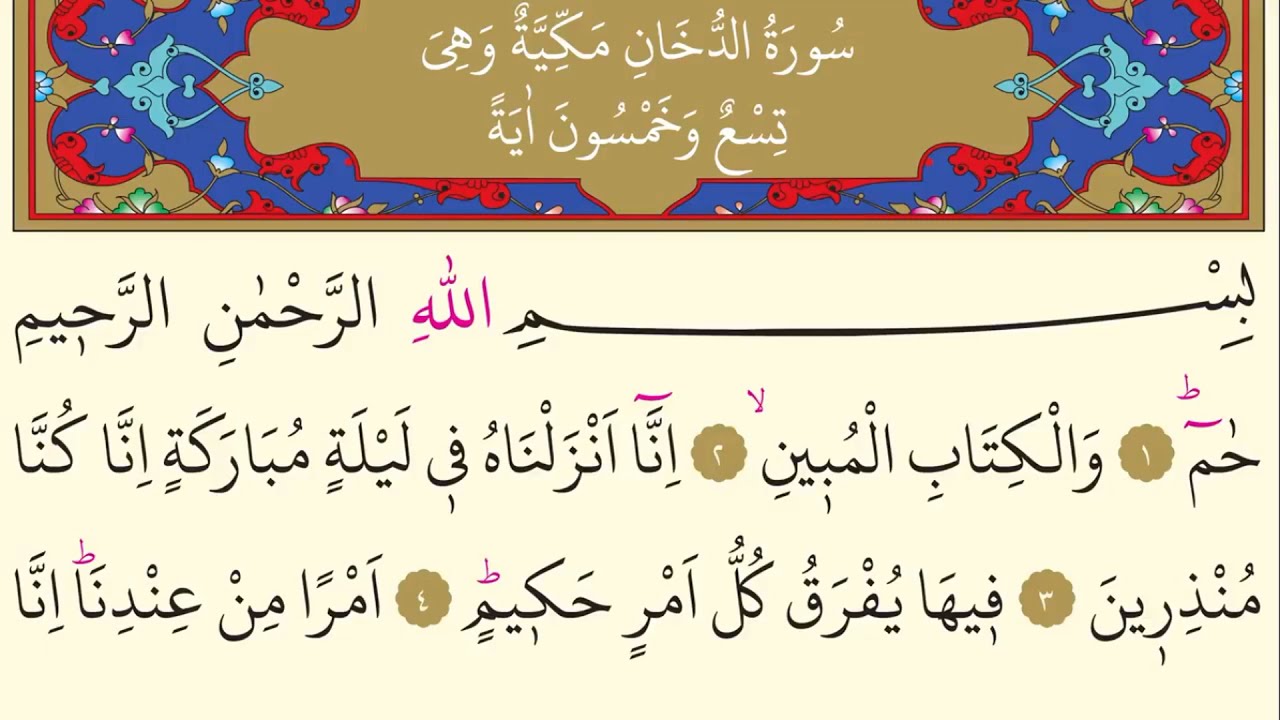 سُورَةُ الدُّخَانِ مَكِّيَّةٌ وَهِىَ
تِسْعٌ وَخَمْسُونَ اٰيَةً
بِسْــــــــمِ اللّٰهِ الرَّحْمٰنِ الرَّحٖيمِ
حٰمٓ ؕ ﴿١﴾ وَالْكِتَابِ الْمُبٖينِ ۙ ﴿٢﴾ اِنَّٓا اَنْزَلْنَاهُ فٖى لَيْلَةٍ مُبَارَكَةٍ اِنَّا كُنَّا
مُنْذِرٖينَ ﴿٣﴾ فٖيهَا يُفْرَقُ كُلُّ اَمْرٍ حَكٖيمٍ ؕ ﴿٤﴾ اَمْرًا مِنْ عِنْدِنَا ؕ اِنَّا